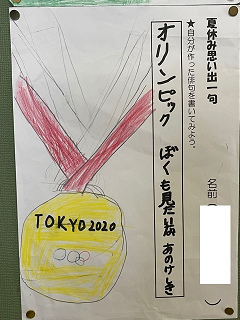 夏休み思い出一句
★自分が作った俳句を書いてみよう。
名前(　　)
オリンピック　ぼくも見たいな　あのけしき
TOKYO 2020